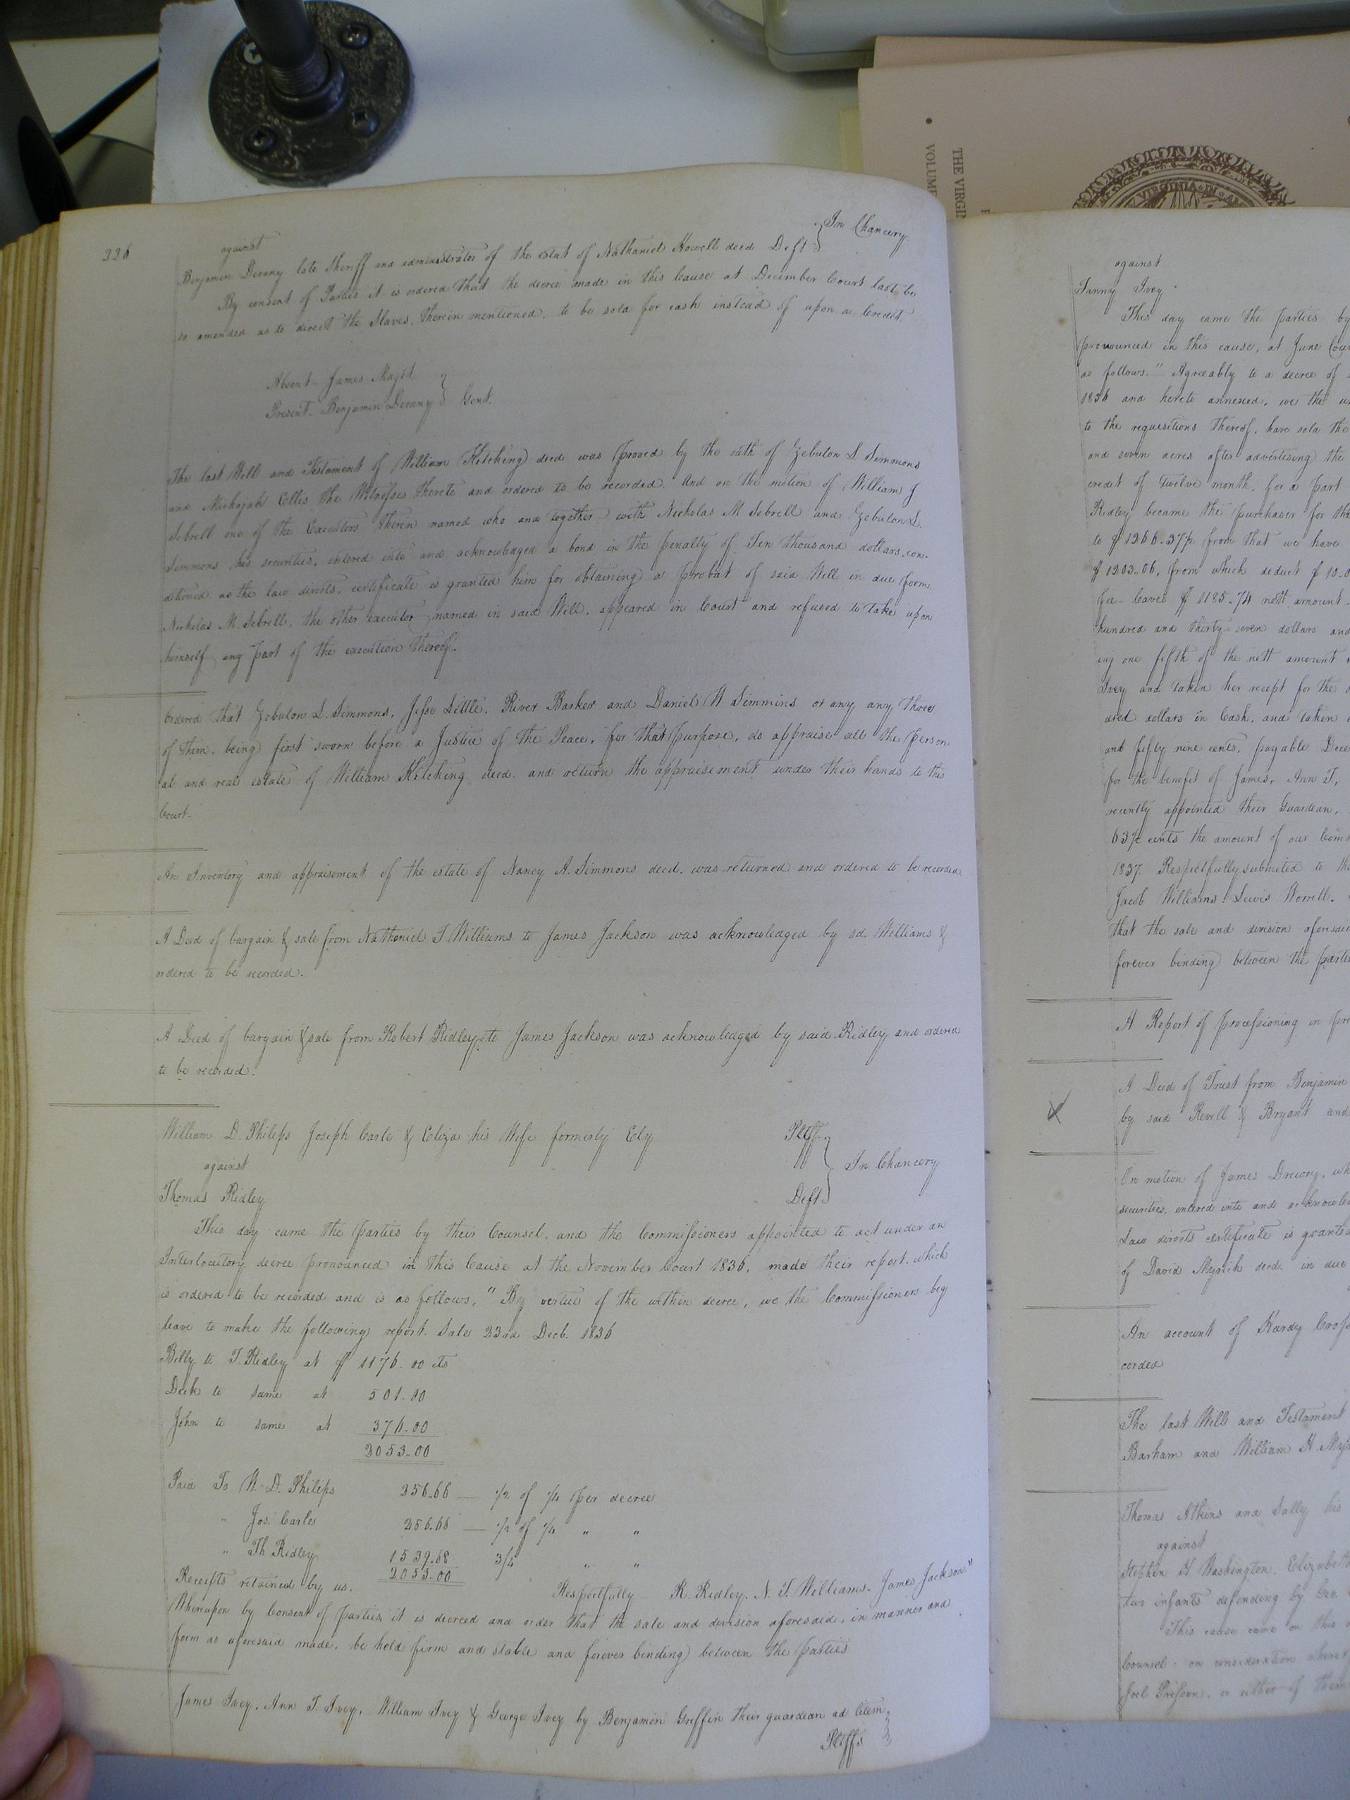 326
against
Benjamin Devany late Sheriff and administrator of the estat of Nathaniel Howell decd Deft } In Chancery
By consent of Parties it is ordered that the decree made in this Cause at December Court last be
so amended as to direct the Slaves, therein mentioned, to be sold for cash instead of upon a Credit
Absent James Maget
Present Benjamin Devany } Gent.
The last Will and Testament of William Kitching decd was proved by the oath of Zebulon S Simmons
and Ellis the Witnesses thereto and ordered to be recorded. And on the motion of William J
Sebrell one of the Executors therein named who and together with Nicholas M Sebrell and Zebulon S.
Simmons his securities, entered into and acknowledged a bond in the penalty of Ten thousand dollars, con-
ditioned as the law directs, certificate is granted him for obtaining a probat of said Will in due form
Nicholas M. Sebrell, the other executor named in said Will, appeared in Court and refused to take upon
himself any part of the execution thereof.
Ordered that Zebulon S. Simmons, Jesse Little, River Barker and Daniel W Simmins or any any three
of them, being first sworn before a Justice of the Peace, for that purpose, do appraise all the person
al and real estate of William Kitching decd. and return the appraisement under their hands to the
Court.
An Inventory and appraisement of the estate of Nancy A. Simmons decd. was returned and ordered to be recorded
A Deed of bargain & sale from Nathaniel T Williams to James Jackson was acknowledged by sd Williams &
ordered to be recorded.
A Deed of bargain & sale from Robert Ridley to James Jackson was acknowledged by said Ridley and ordered
to be recorded.
William D. Philips Joseph Carle & Eliza his Wife formerly Ely Pltff
against } In Chancery
Thomas Ridley Deft
This day came the parties by their Counsel, and the Commissioners appointed to act under an
Interlocutory decree pronounced in this Cause at the November Court 1836, made their report, which
is ordered to be recorded and is as follows, "By vertue of the within decree, we the Commissioners beg
leave to make the following report. Sale 23rd Decb. 1836
Billy to T. Ridley at $ 1176.00 cts
Dick to same at 501.00
John to same at 376.00
2053.00
Paid To W. D. Philips 256.66 — 1/2 of 1/4 per decree
" Jos. Carle 256.66 — 1/2 of 1/4 " "
" Th Ridley 1539.68 3/4 " "
2053.00
Receipts retained by us. Respectfully R. Ridley, N. T. Williams. James Jackson"
Whereupon by Consent of Parties it is decreed and order that the sale and division aforesaid, in manner and
form as aforesaid made, be held firm and stable and forever binding between the parties
James Ivey, Ann T. Ivey, William Ivey & George Ivey by Benjamin Griffin their guardian ad litem
Pltffs
THE VIRGIN
VOLUME
VIRGINIA
against
Fanny Ivey
This day came the parties by
pronounced in this cause, at June Cou
as follows. "Agreeably to a decree of
1836 and hereto annexed, we the u
to the requisitions thereof, have sold the
and seven acres after advertising the
credit of twelve month, for a part
Ridley became the purchaser for th
to $1366.37½ from that we have
$1203.06, from which deduct $
fee leaves $1185.74 nett amount
hundred and thirty seven dollars and
ing one fifth of the nett amount
Ivey and taken her receipt for the
dred dollars in Cash, and taken
and fifty nine cents, payable Dece
for the benefit of James, Ann T,
recently appointed their Guardian,
63½ cents the amount of our Com
1837. Respectfully submitted to th
Jacob Williams. Lewis Worrell.
that the sale and division aforesai
forever binding between the parti
A Report of processioning in pre
A Deed of Trust from Benjamin
by said Revill & Bryant and
On motion of James Drewry, wh
securities, entered into and acknowle
Law directs certificate is grante
of David Myrick decd. in due
An account of Hardy Cros
corded
The last Will and Testament
Barham and William H.
Thomas Atkins and Sally his
against
Stephen H Washington, Elizabeth
ter infants defending by Geo.
This cause came on this
Counsel on consideration where